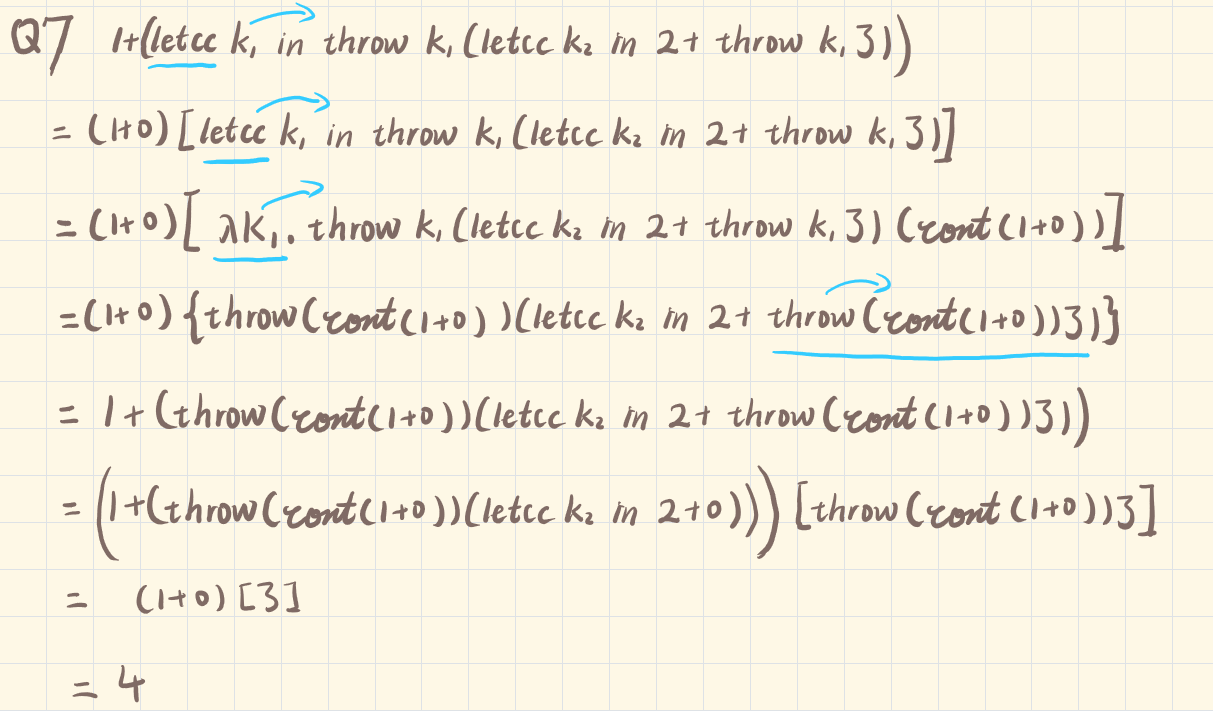 Q7 1+(letcc k₁ in throw k₁ (letcc k₂ in 2+ throw k₁ 3))
= (1+0) [letcc k₁ in throw k₁ (letcc k₂ in 2+ throw k₁ 3)]
= (1+0) [ λk₁. throw k₁ (letcc k₂ in 2+ throw k₁ 3) (cont (1+0))]
=(1+0) {throw(cont(1+0))(letcc k₂ in 2+ throw(cont(1+0))3)}
= 1+(throw(cont(1+0))(letcc k₂ in 2+ throw(cont(1+0))3))
= (1+(throw(cont(1+0))(letcc k₂ in 2+0))) [throw(cont(1+0))3]
= (1+0) [3]
= 4